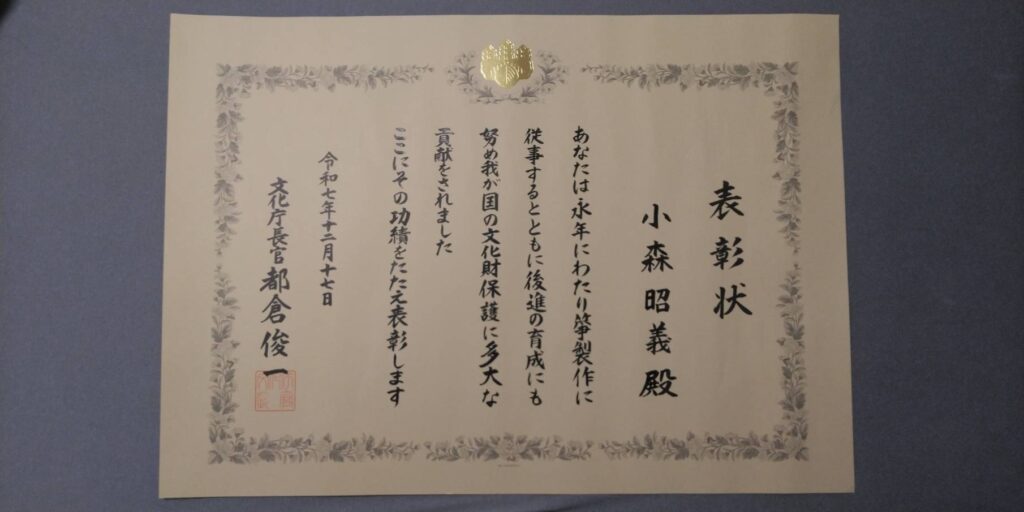 表彰状
小森昭義殿
あなたは永年にわたり箏製作に
従事するとともに後進の育成にも
努め我が国の文化財保護に多大な
貢献をされました
ここにその功績をたたえ表彰します
令和七年十二月十七日
文化庁長官 都倉俊一